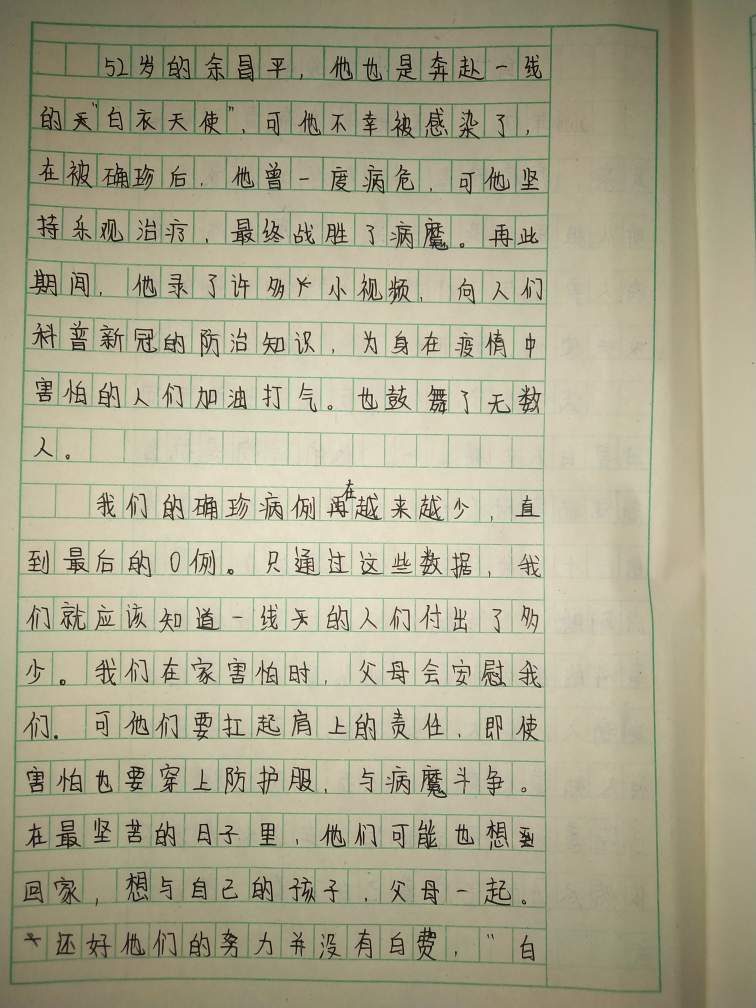 52岁的余昌平，他也是奔赴一线
的"白衣天使"，可他不幸被感染了，
在被确珍后，他曾一度病危，可他坚
持乐观治疗，最终战胜了病魔。再此
期间，他录了许多小视频，向人们
科普新冠的防治知识，为身在疫情中
害怕的人们加油打气。也鼓舞了无数
人。
我们的确珍病例在越来越少，直
到最后的0例。只通过这些数据，我
们就应该知道一线的人们付出了多
少。我们在家害怕时，父母会安慰我
们。可他们要扛起肩上的责任，即使
害怕也要穿上防护服，与病魔斗争。
在最坚苦的日子里，他们可能也想到
回家，想与自己的孩子，父母一起。
还好他们的努力并没有白费，"白